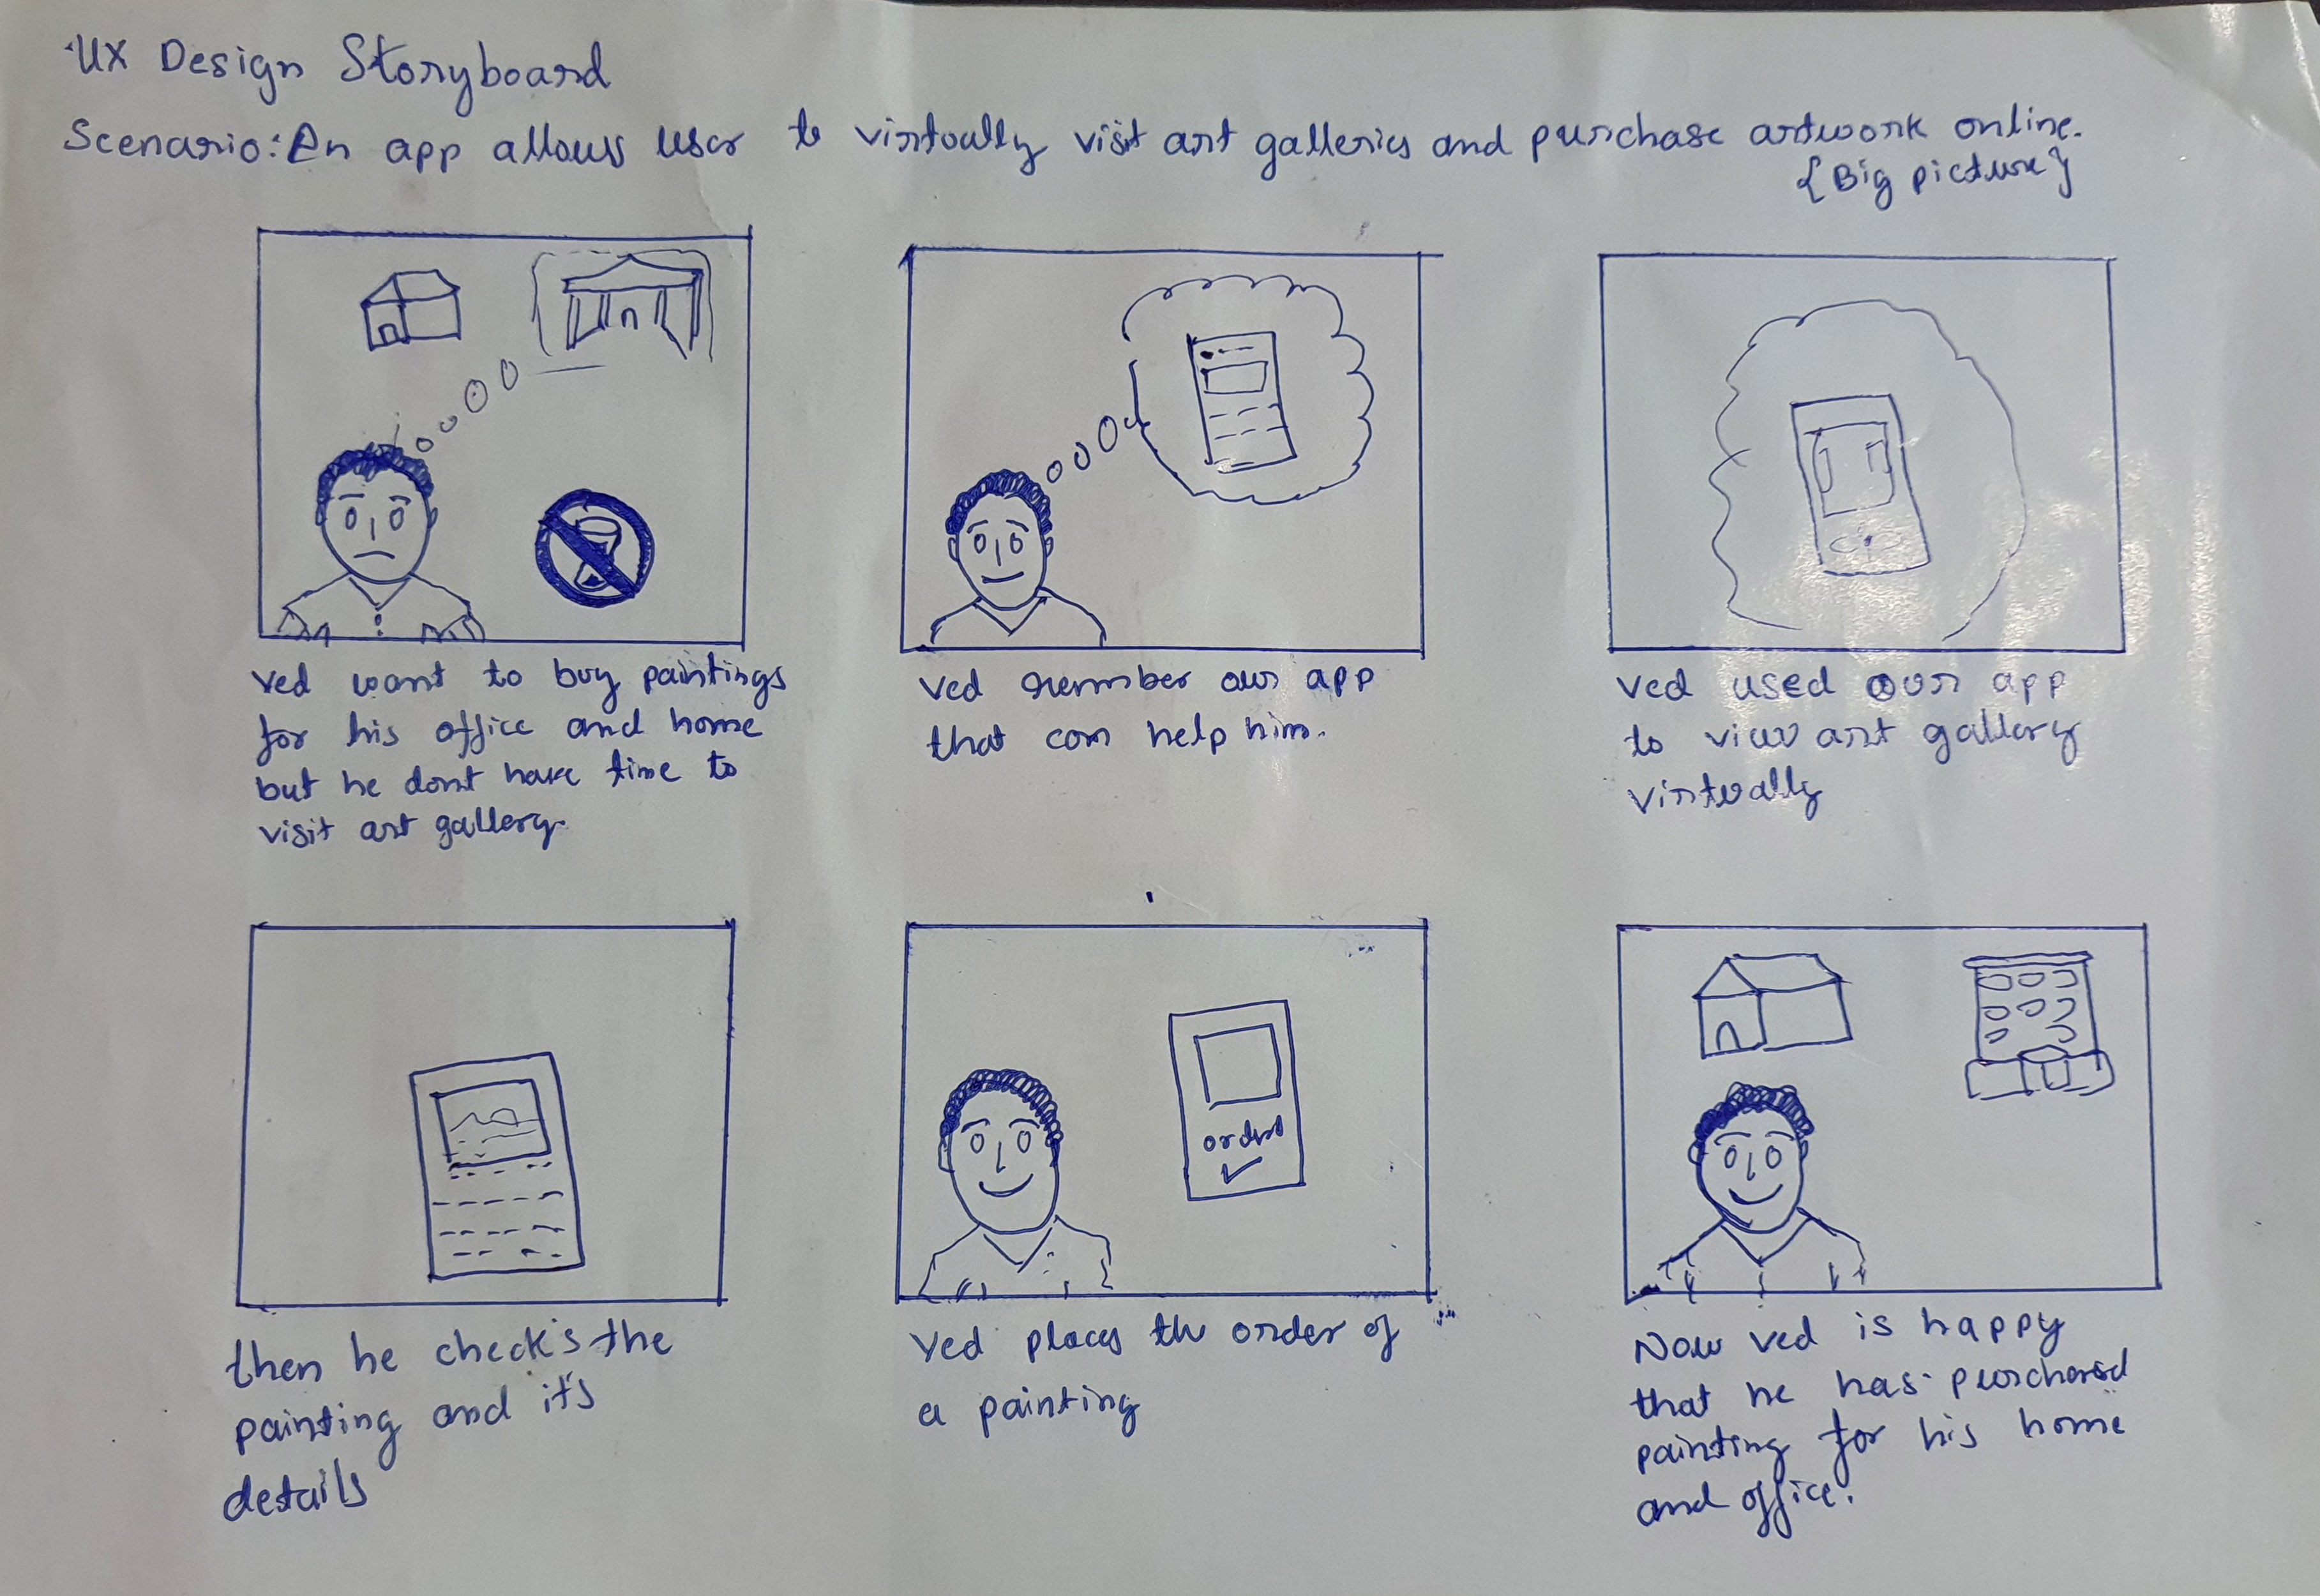 UX Design Storyboard
Scenario: An app allows user to virtually visit art galleries and purchase artwork online.
{Big picture}
Ved want to buy paintings
for his office and home
but he dont have time to
visit art gallery.
Ved remember our app
that can help him.
Ved used our app
to view art gallery
virtually
then he check's the
painting and it's
details
order
Ved places the order of
a painting
Now Ved is happy
that he has purchased
painting for his home
and office.